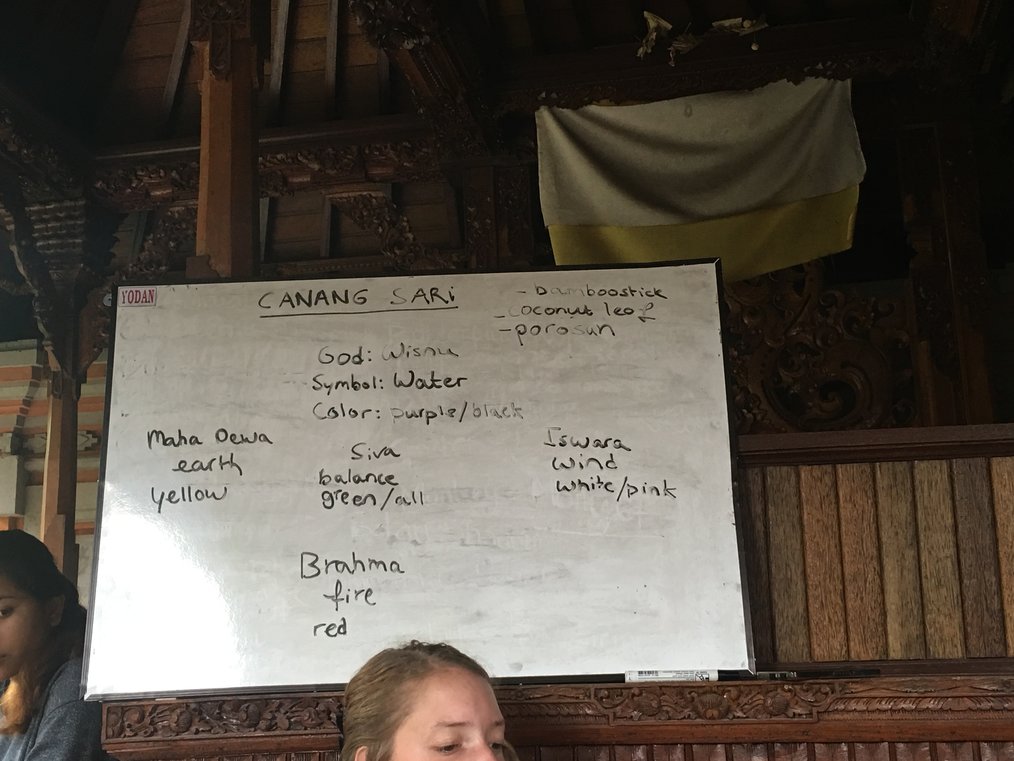 YODAN
CANANG SARi
- bamboostick
- coconut leaf
- porosun
God: Wisnu
Symbol: Water
Color: purple/black
Maha Dewa
earth
yellow
Siva
balance
green/all
Iswara
wind
white/pink
Brahma
fire
red